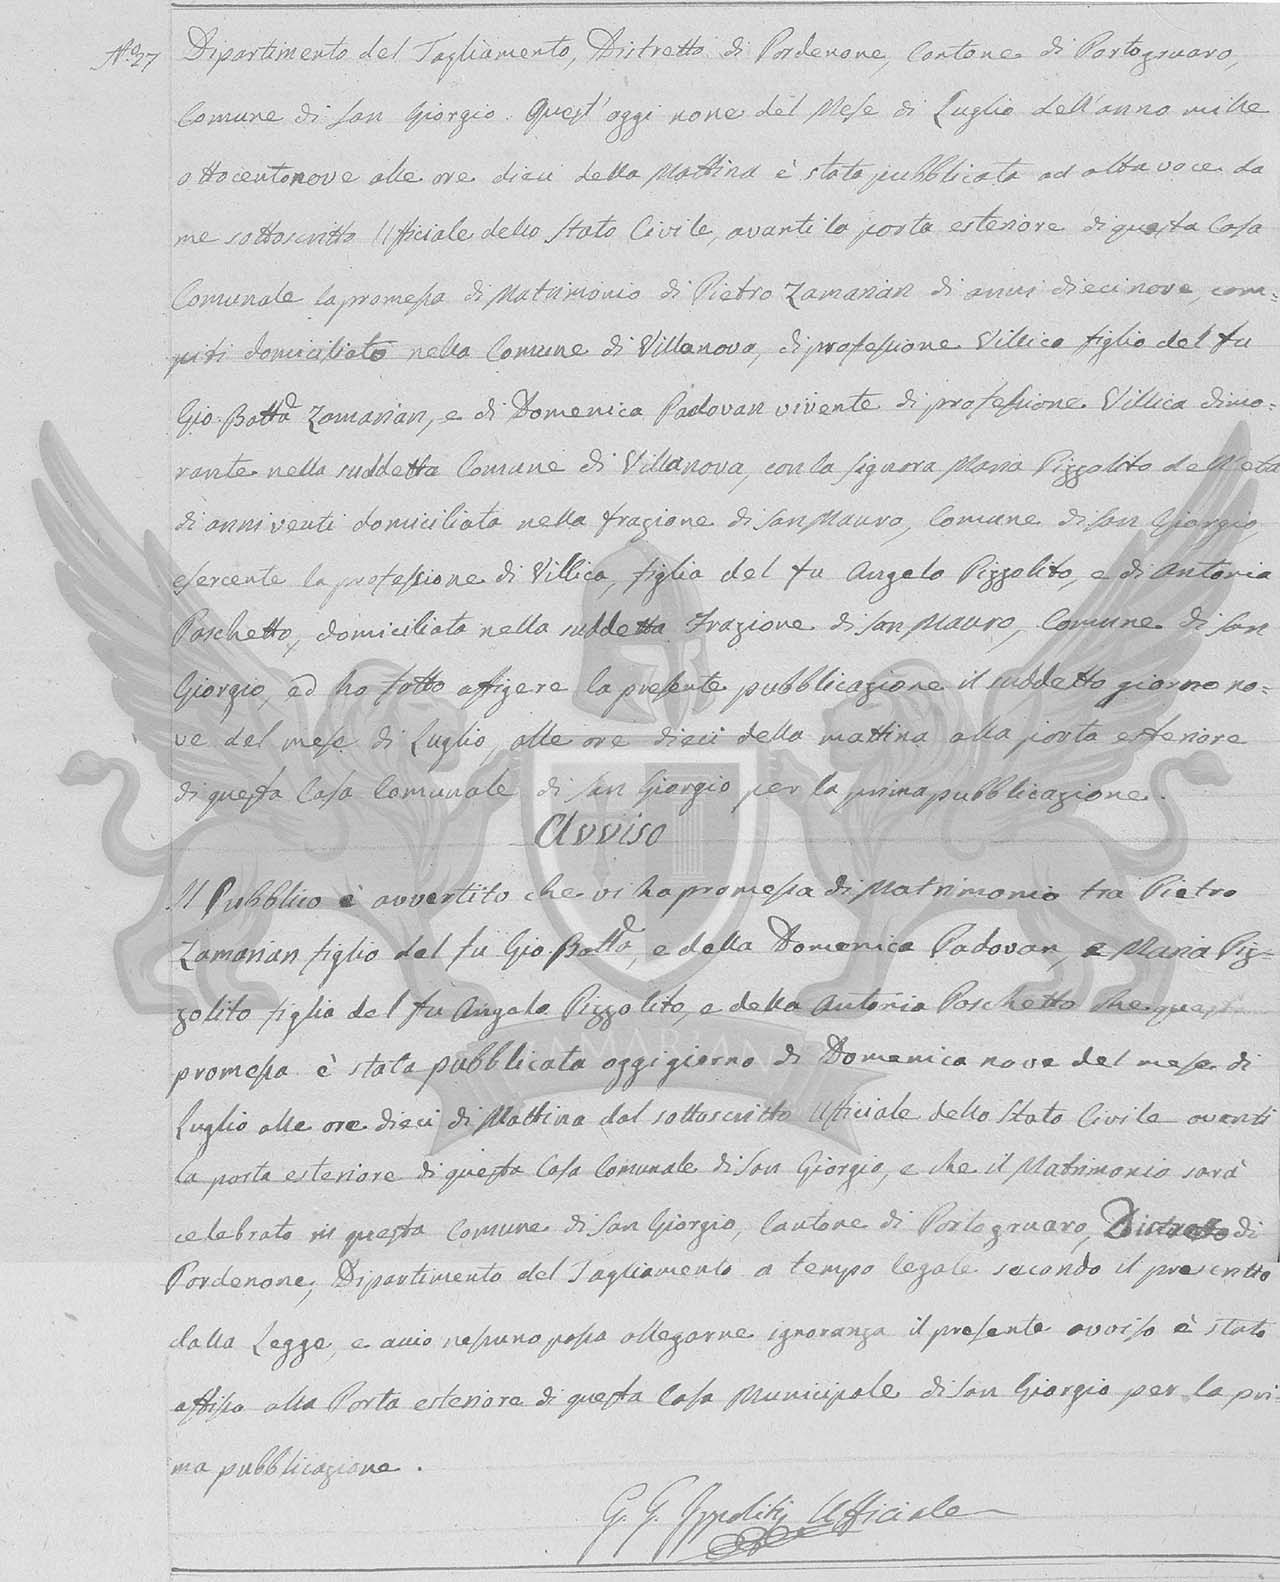 N.º 27 Dipartimento del Tagliamento, Distretto di Pordenone, Cantone di Portogruaro,
Comune di San Giorgio. Quest'oggi nove del Mese di Luglio dell'anno mille
ottocentonove alle ore dieci della Mattina è stata pubblicata ad alta voce da
me sottoscritto Ufficiale dello Stato Civile, avanti la porta esteriore di questa Casa
Comunale la promessa di Matrimonio di Pietro Zamarian di anni diecinove, com=
piti domiciliato nella Comune di Villanova, di professione Villico figlio del fu
Gio: Batta Zamarian, e di Domenica Padovan vivente di professione Villica dimo=
rante nella suddetta Comune di Villanova, con la Signora Maria Pizzolito dell'età
di anni venti domiciliata nella frazione di San Mauro, Comune di San Giorgio,
esercente la professione di Villica, figlia del fu Angelo Pizzolito, e di Antonia
Paschetto, domiciliata nella suddetta Frazione di San Mauro, Comune di San
Giorgio, ed ho fatto affigere la presente pubblicazione il suddetto giorno no=
ve del mese di Luglio, alle ore dieci della mattina alla porta esteriore
di questa Casa Comunale di San Giorgio per la prima pubblicazione.
Avviso
Il Pubblico è avvertito che vi ha promessa di Matrimonio tra Pietro
Zamarian figlio del fu Gio: Batta, e della Domenica Padovan, e Maria Piz=
zolito figlia del fu Angelo Pizzolito, e della Antonia Paschetto che questa
promessa è stata pubblicata oggi giorno di Domenica nove del mese di
Luglio alle ore dieci di Mattina dal sottoscritto Ufficiale dello Stato Civile avanti
la porta esteriore di questa Casa Comunale di San Giorgio, e che il Matrimonio sarà
celebrato in questa Comune di San Giorgio, Cantone di Portogruaro, Distretto di
Pordenone, Dipartimento del Tagliamento a tempo legale secondo il prescritto
dalla Legge, e acciò nessuno possa allegarne ignoranza il presente avviso è stato
affisso alla Porta esteriore di questa Casa Municipale di San Giorgio per la pri=
ma pubblicazione.
G. G. Ippoliti Ufficiale